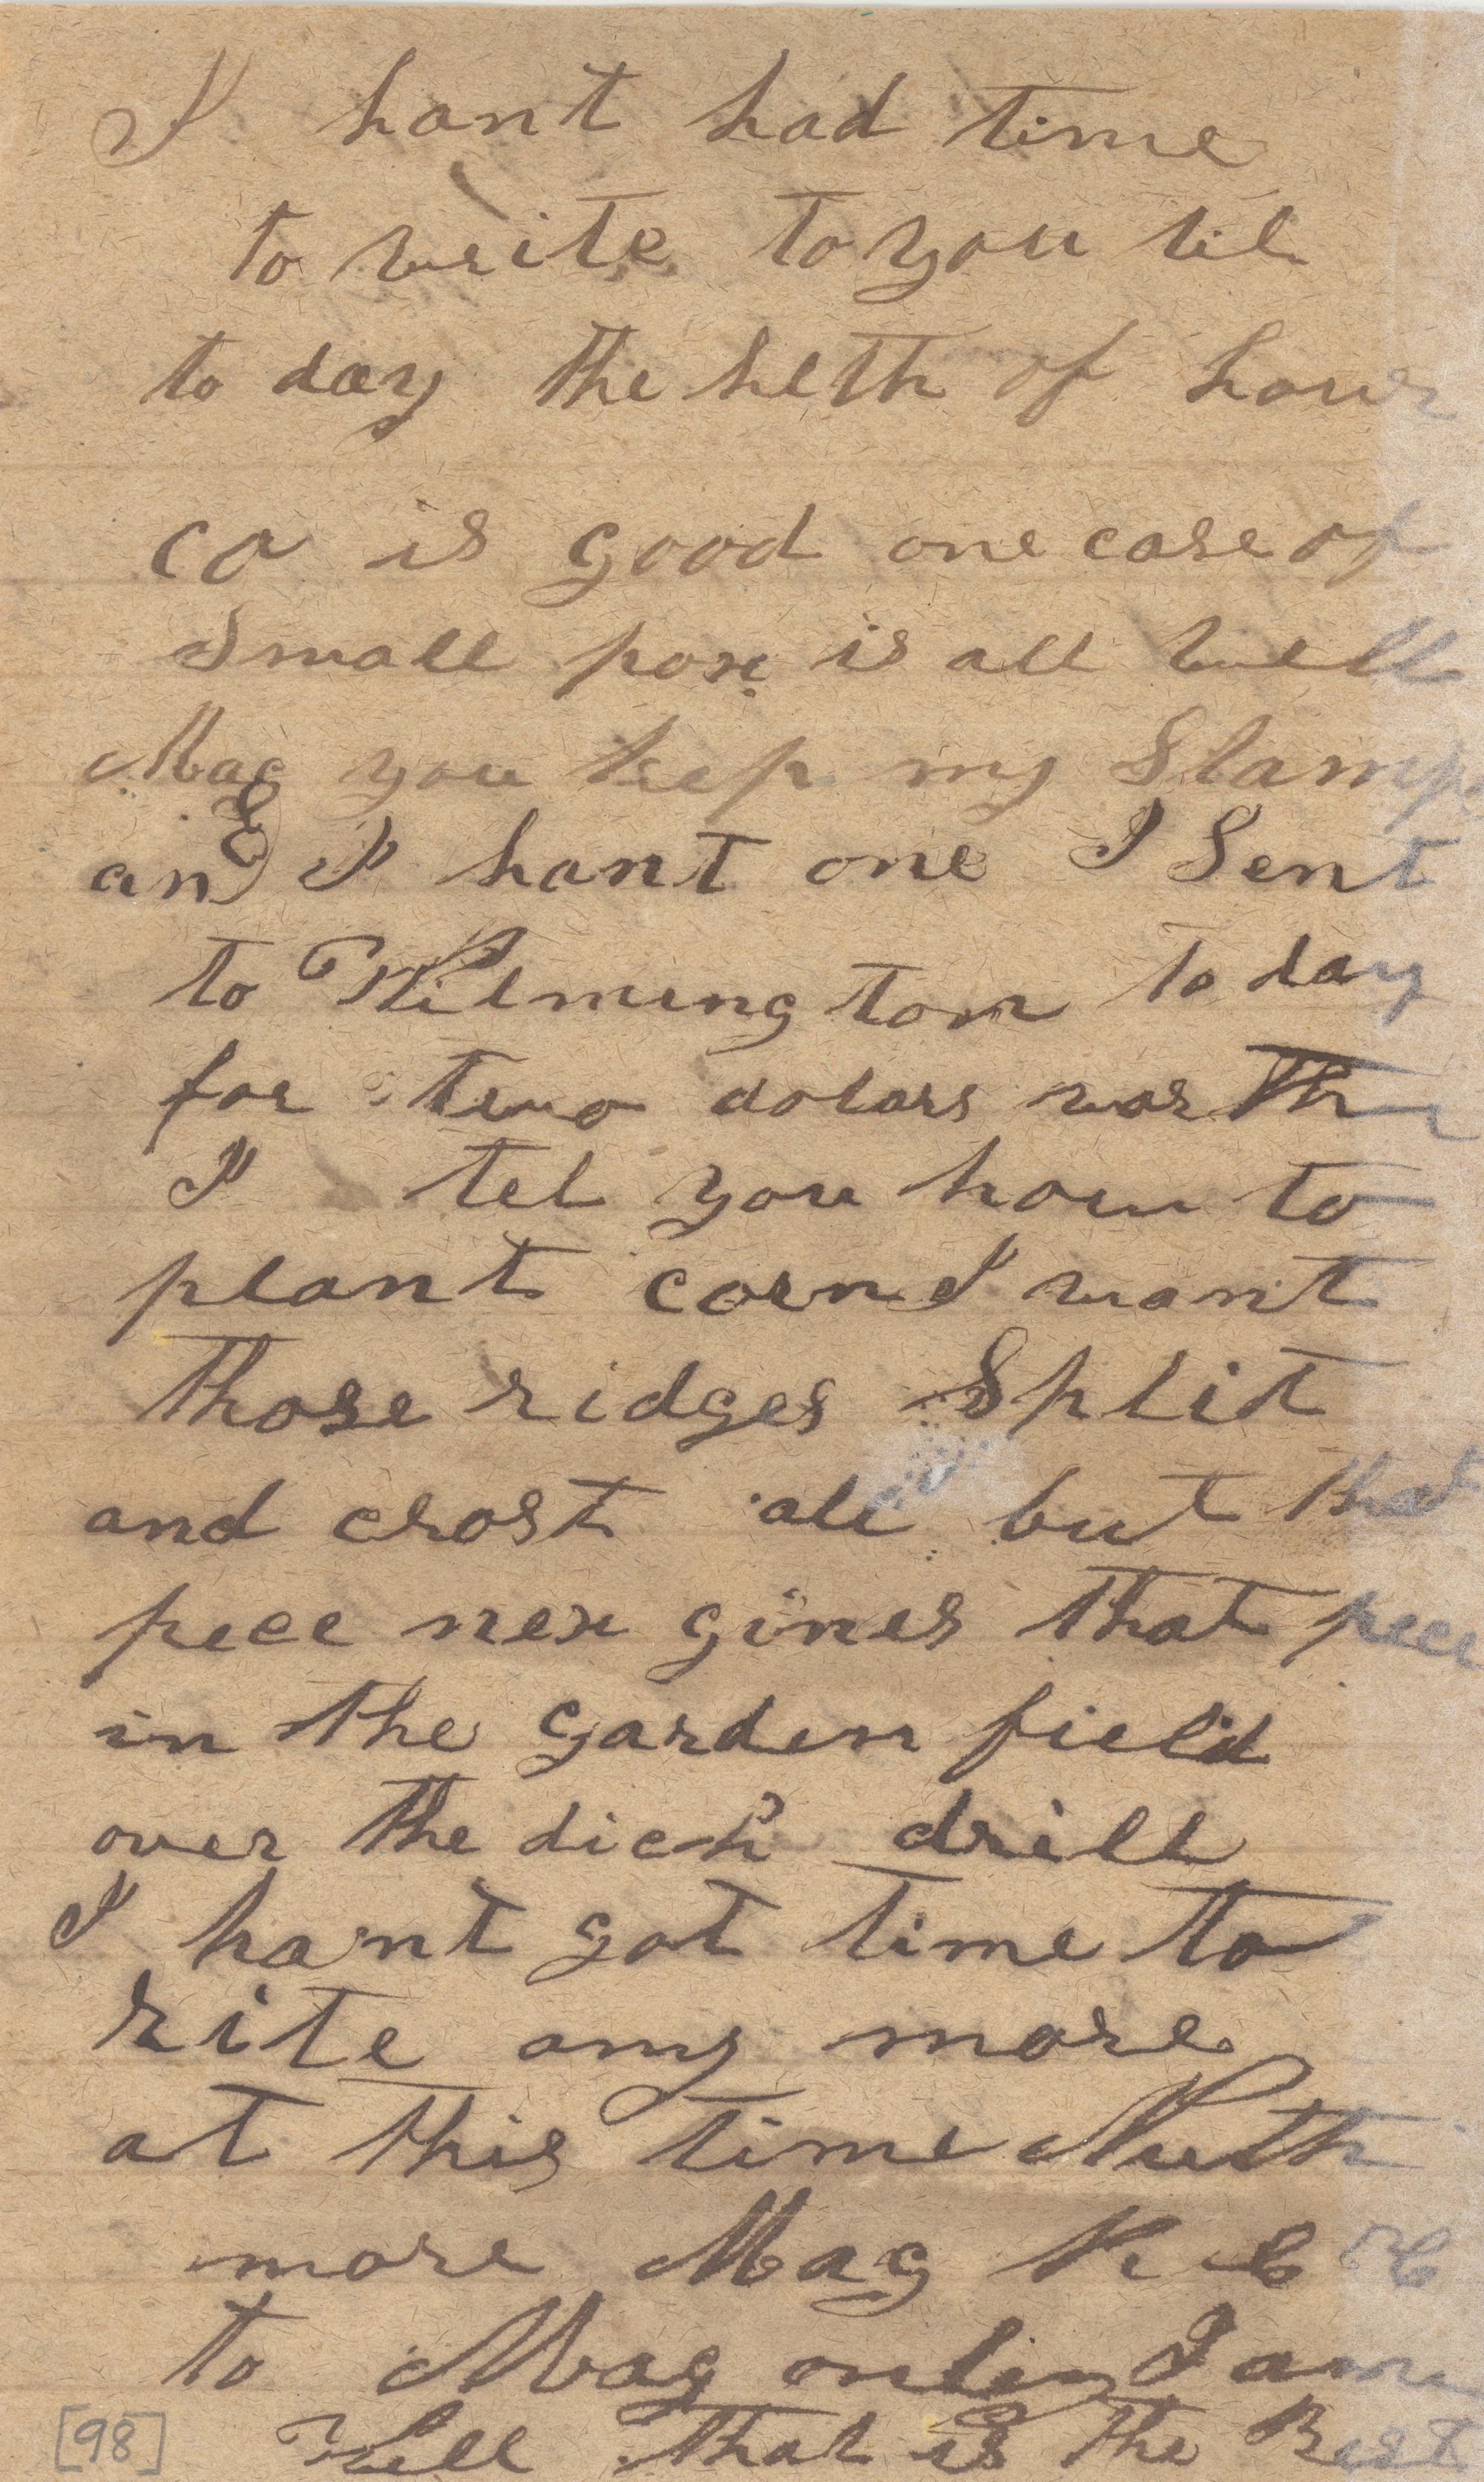 I hant had time
to write to you til
to day the helth of hour
co is good one case of
Small pox is all well
Mag you keep my Stamps
and I hant one I Sent
to Wilmington to day
for two dolars worth
I tel you how to
plant corn I want
those ridges Split
and crost all but that
pece nex gines that pece
in the garden field
over the dich drill
I hant got time to
rite any more
at this time Nuth
more Mag
to Mag only I am
Well that is the Best
[98]